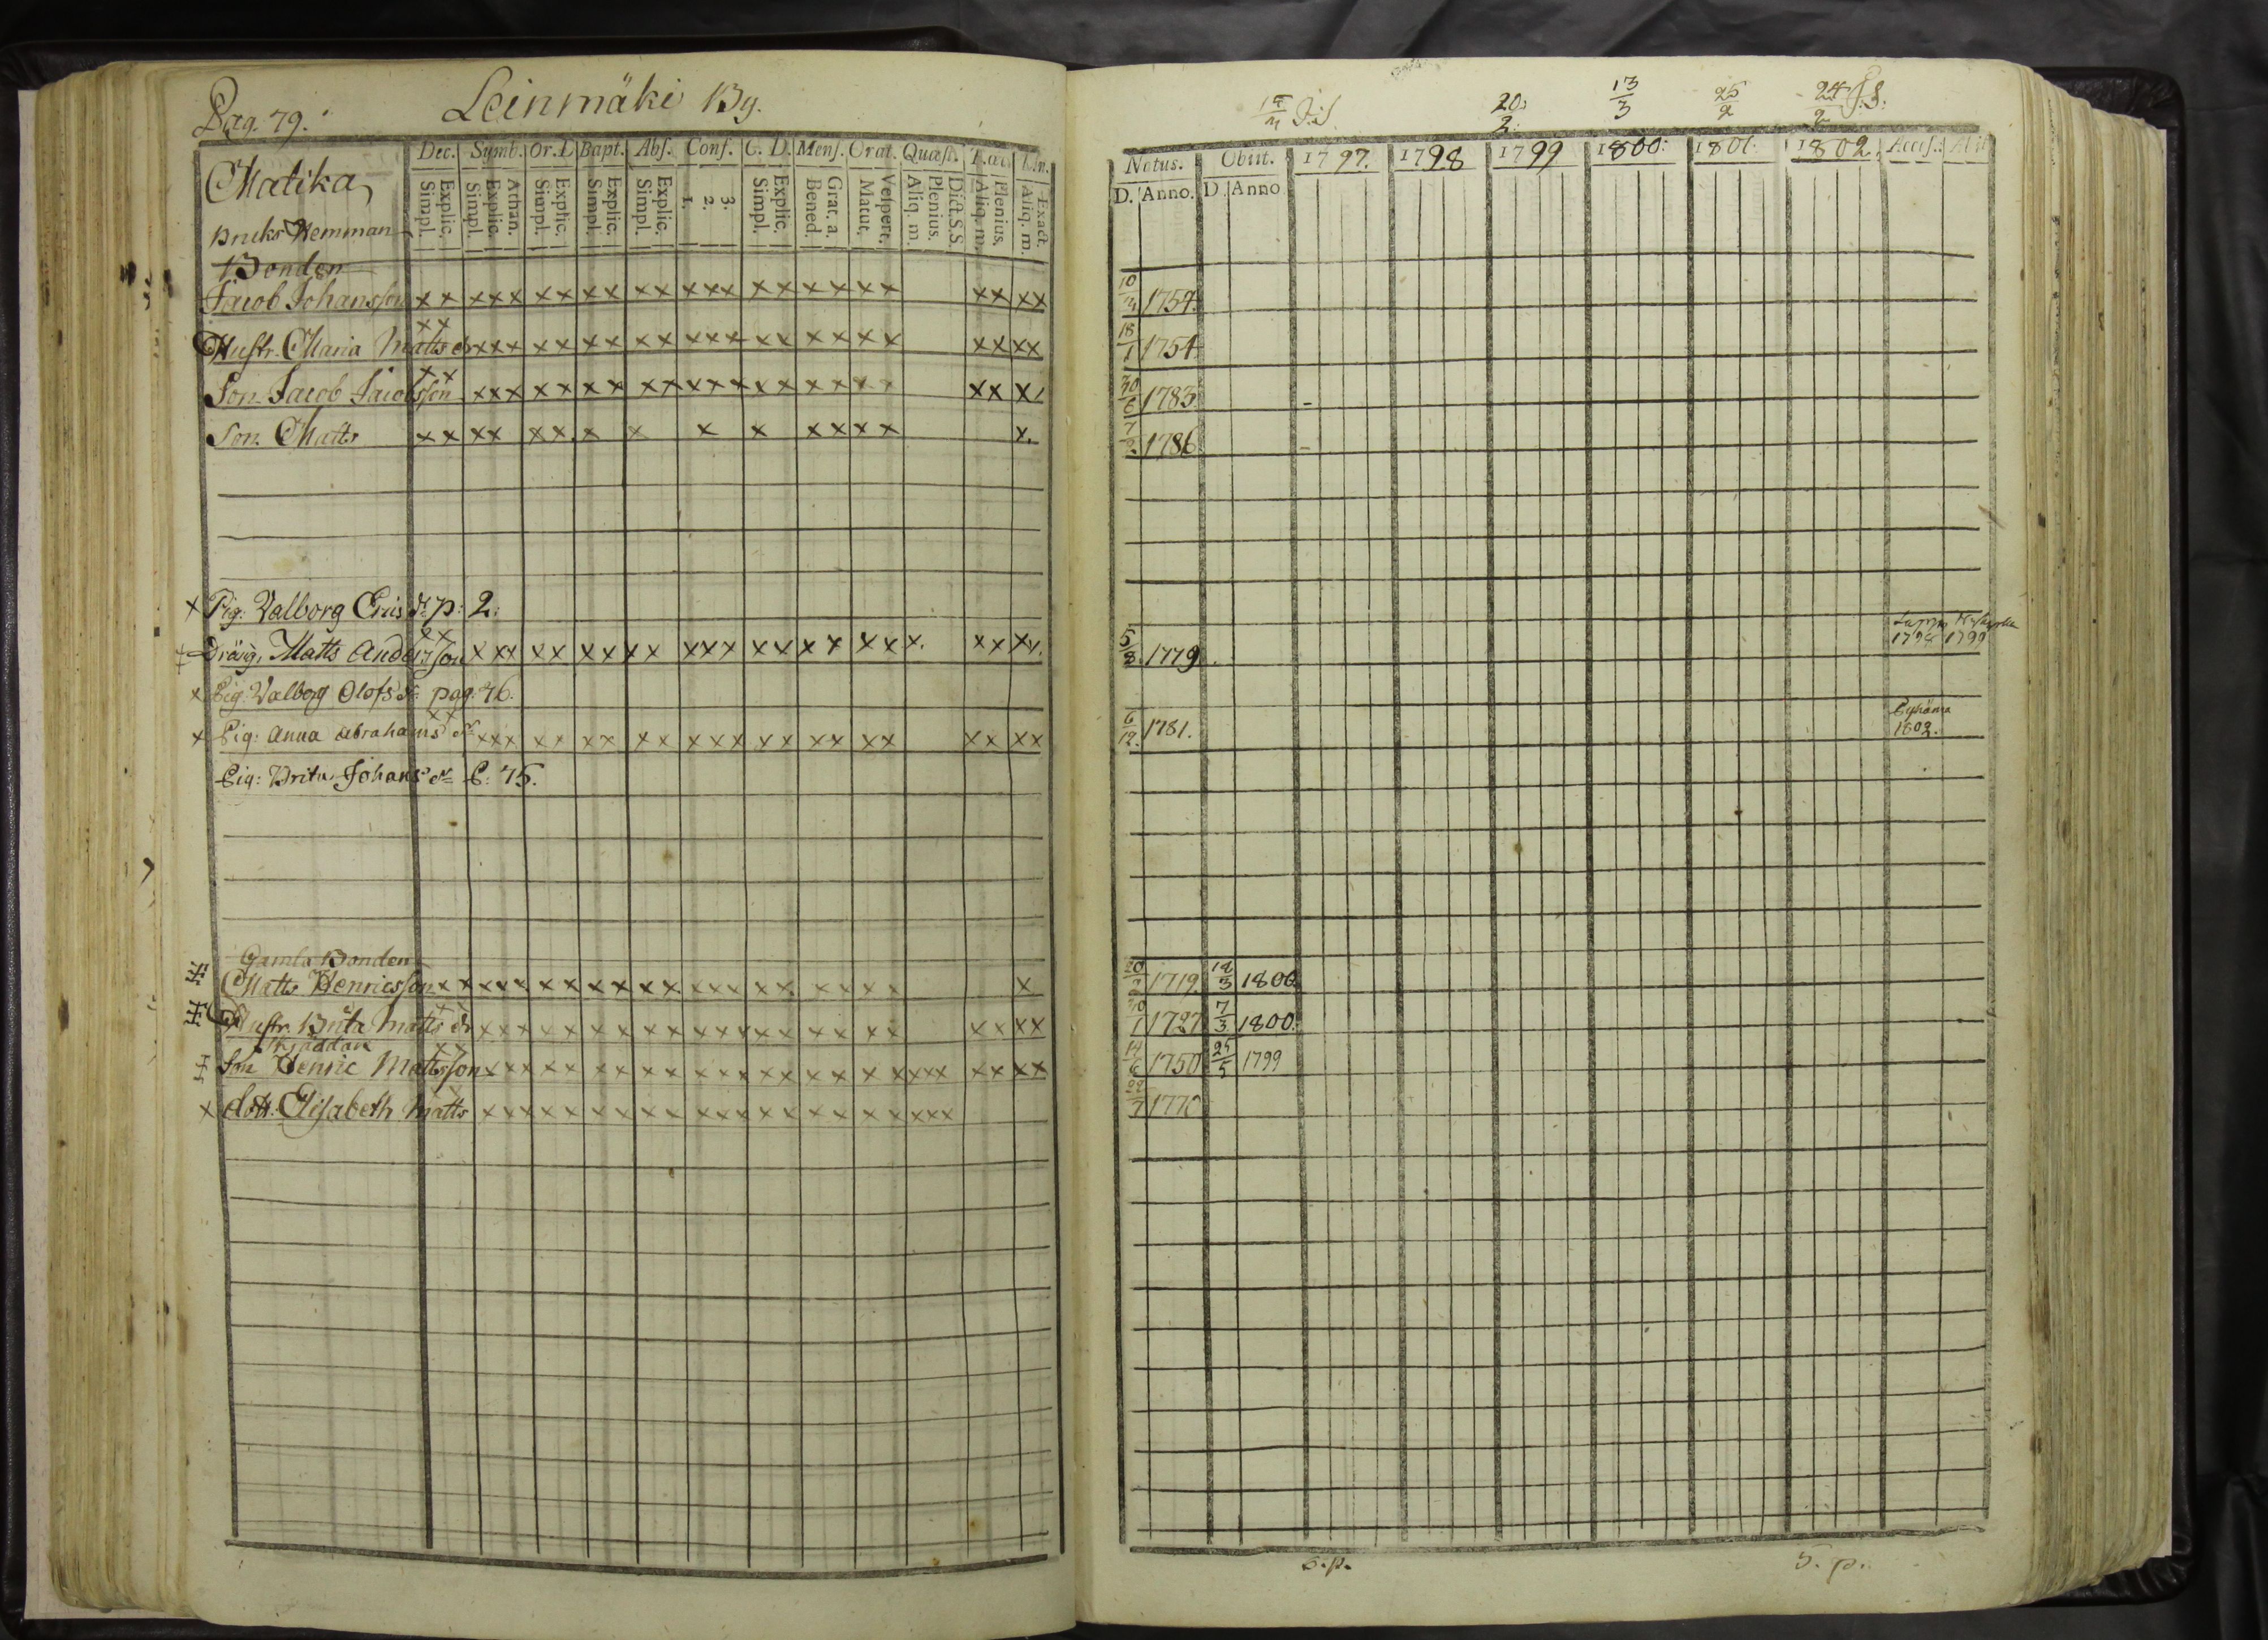 Pag. 79. Leinmäki By.
Matika
Bruks Hemman
Dec. Symb. Or. D. Bapt. Abs. Conf. C. D. Mens. Orat. Quæst.
Explic. Simpl. Athan. Explic. Simpl. Explic. Simpl. Explic. Simpl. Explic. Simpl. 3. 2. 1. Explic. Simpl. Grat. a. Bened. Vespert. Matut. Dict. S.S. Plenius. Aliq. m. Plenius. Aliq. m. Exact. Aliq. m.
Bonden
Jacob Johansson xx xxx xx xx xx xxx xx xx xx xx xx
xx
Hustr. Maria Matts dr xxx xx xx xx xxx xx xx xx xx xx
xx
Son Jacob Jacobsson xxx xx xx xx xxx xx xx xx xx x
Son Matts xx xx xx x x x x xx xx x.
x Pig: Valborg Erics dr p: 2:
xx
Dräng Matts Andersson xxx xx xx xx xxx xx xx xx x. xx xx
x Pig. Valborg Olofs dr pag. 76.
xx
x Pig: Anna Abrahams dr xxx xx xx xx xxx xx xx xx xx xx
Pig: Brita Johans dr P: 75.
Gamla Bonden
Matts Henricsson xx xxx xx xx xx xxx xx xx xx x
Hustr. Brita Matts dr xxx xx xx xx xxx xx xx xx xx xx
xx
Son Henric Mattsson xxx xx xx xx xxx xx xx xx xxx xx xx
x dott. Elisabeth Matts xxx xx xx xx xxx xx xx xx xxx
20. 2. 13/3 25/2 24/2
Natus. Obiit. 1797. 1798 1799 1800: 1801. 1802. Access.
D. Anno. D. Anno
10 1754.
18/1 1754.
30/6 1783.
7 1786.
5/8 1779. 1799
6/12. 1781. Pyhäma
1802.
1719 18/3 1800
1727 7/3 1800.
14/6 1750 25/5 1799
22/7 1770
S. p. S. p.